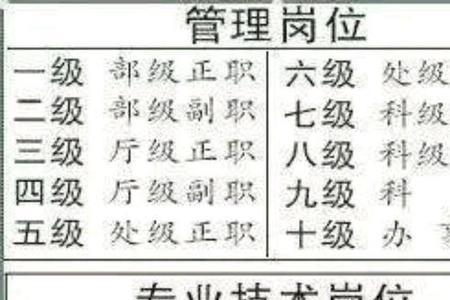 管理岗位
一级 部级正职 六级 处级
二级 部级副职 七级 科级
三级 厅级正职 八级 科级
四级 厅级副职 九级 科
五级 处级正职 十级 办
专业技术岗位